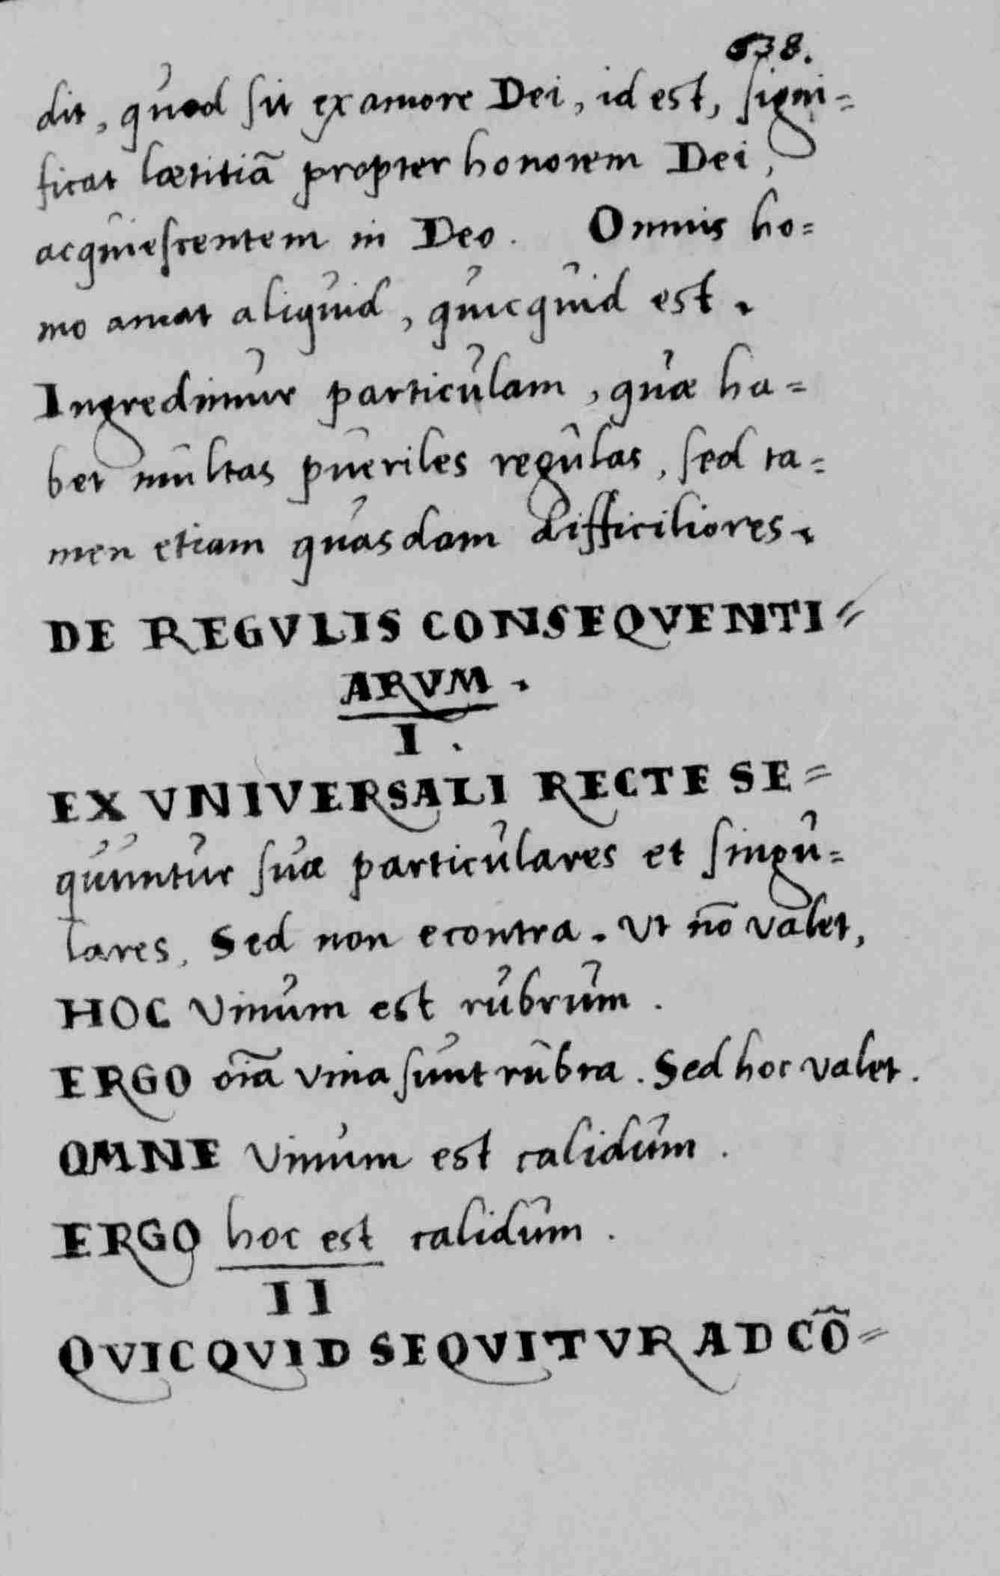 638.
dit, quod sit ex amore Dei, id est, signi=
ficat lætitiā propter honorem Dei,
acquiescentem in Deo. Omnis ho=
mo amat aliquid, quicquid est.
Ingredimur particulam, quæ ha=
bet multas pueriles regulas, sed ta=
men etiam quasdam difficiliores.
DE REGVLIS CONSEQVENTI=
ARVM.
I.
EX VNIVERSALI RECTE SE=
quuntur suæ particulares et singu=
lares, Sed non econtra. Vt nō valet,
HOC Vinum est rubrum.
ERGO oīa vina sunt rubra. Sed hoc valet.
OMNE Vinum est calidum.
ERGO hoc est calidum.
II
QVICQVID SEQVITVR AD CÕ=